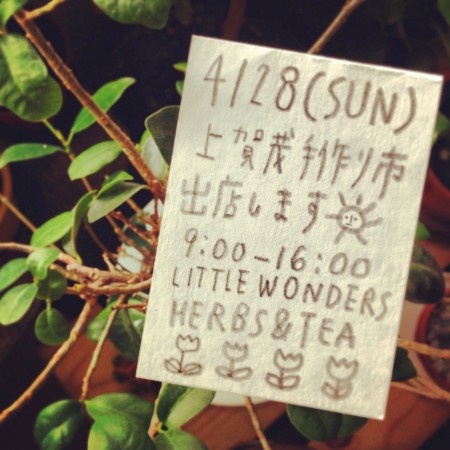 4/28(SUN)
上賀茂手作り市
出店します
9:00-16:00
LITTLE WONDERS
HERBS&TEA